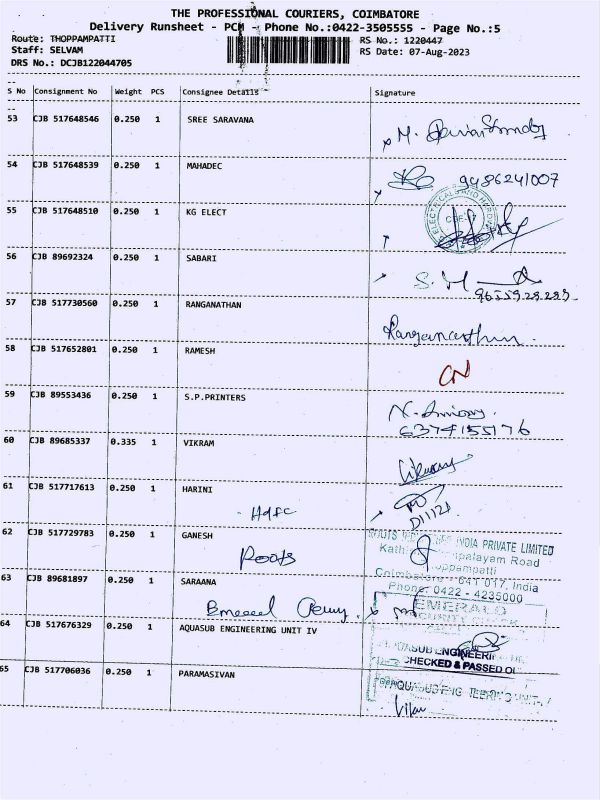 THE PROFESSIONAL COURIERS, COIMBATORE
Delivery Runsheet - PCM - Phone No.:0422-3505555 - Page No.:5
Route: THOPPAMPATTI RS No.: 1220447
Staff: SELVAM RS Date: 07-Aug-2023
DRS No.: DCJB122044705
S No Consignment No Weight PCS Consignee Details Signature
53 CJB 517648546 0.250 1 SREE SARAVANA
M.
54 CJB 517648539 0.250 1 MAHADEC
9486241007
55 CJB 517648510 0.250 1 KG ELECT
ELECTRICALS AND
56 CJB 89692324 0.250 1 SABARI
S. M
57 CJB 517730560 0.250 1 RANGANATHAN
Ranganathan.
58 CJB 517652801 0.250 1 RAMESH
CN
59 CJB 89553436 0.250 1 S.P.PRINTERS
6374155176
60 CJB 89685337 0.335 1 VIKRAM
61 CJB 517717613 0.250 1 HARINI
Hdfc
D11121
62 CJB 517729783 0.250 1 GANESH
Roots
ROOTS INDIA PRIVATE LIMITED
Kath palayam Road
Thoppampatti
Coimbatore - 641 017, India
Phone: 0422 - 4235000
63 CJB 89681897 0.250 1 SARAANA
EMERALD
SECURITY CHECK
64 CJB 517676329 0.250 1 AQUASUB ENGINEERING UNIT IV
AQUASUB ENGINEERING
CHECKED & PASSED
65 CJB 517706036 0.250 1 PARAMASIVAN